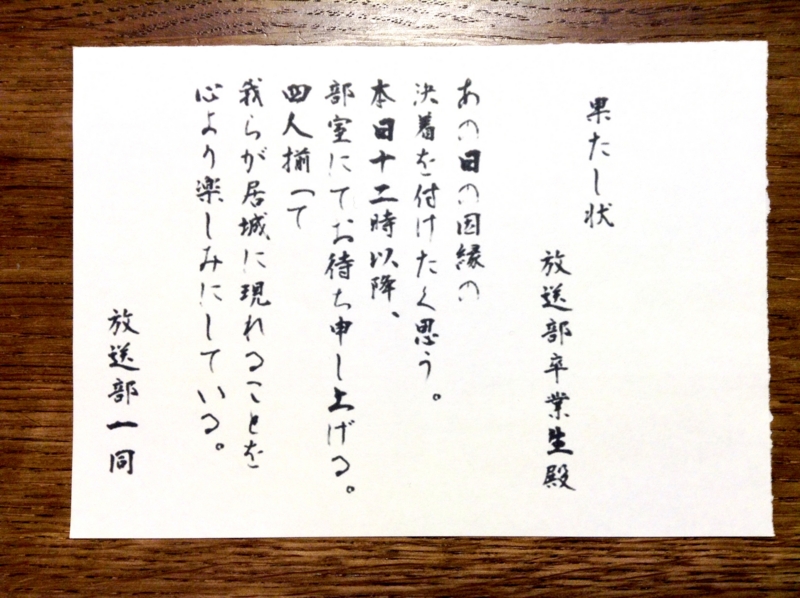 果たし状
放送部卒業生殿
あの日の因縁の
決着を付けたく思う。
本日十二時以降、
部室にてお待ち申し上げる。
四人揃って
我らが居城に現れることを
心より楽しみにしている。
放送部一同